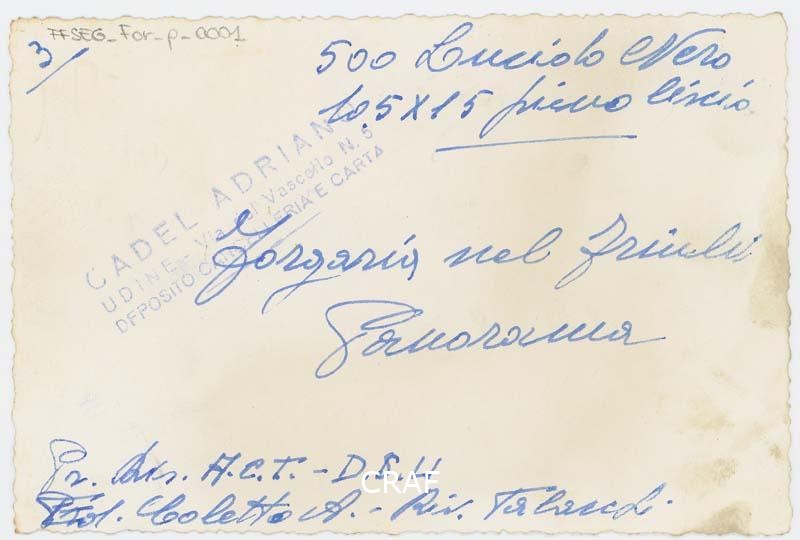 FFSEG_For_p_0001
3/
500 Lucido Nero
10,5X15 pieno liscio
CADEL ADRIAN
UDINE - Via del Vascello N. 5
DEPOSITO CANCELLERIA E CARTA
Forgaria nel Friuli
Panorama
A.C.T. - D.
CRAF
Coletto A. - Riv.